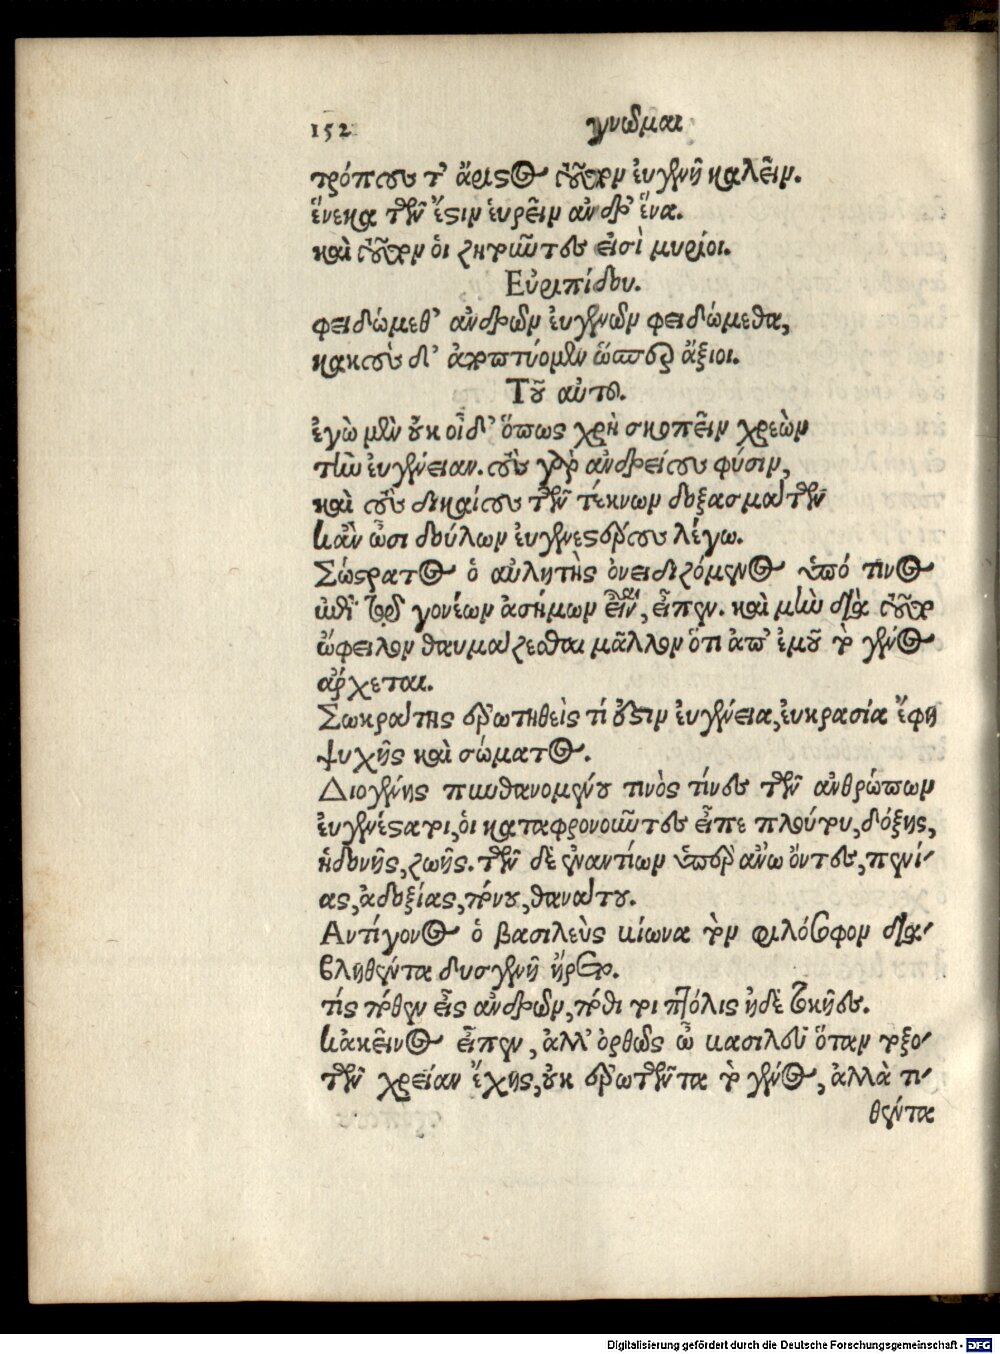 152 γνῶμαι
τρόπους τ' ἄριστος τοῦτον εὐγενῆ καλεῖν.
ἕνεκα τῶν ἔστιν εὑρεῖν ἄνδρ' ἕνα.
καὶ τοῦτον οἱ ζητοῦντες εἰσὶ μυρίοι.
Εὐριπίδου.
φειδώμεθ' ἀνδρῶν εὐγενῶν φειδώμεθα,
κακοὺς δ' ἀποπτύομεν ὥσπερ ἄξιοι.
Τοῦ αὐτοῦ.
ἐγὼ μὲν οὐκ οἶδ' ὅπως χρὴ σκοπεῖν χρεὼν
τὴν εὐγένειαν. τοὺς γὰρ ἀνδρείους φύσιν,
καὶ τοὺς δικαίους τῶν τέκνων δοξασμάτων
κἂν ὦσι δούλων εὐγενεστέρους λέγω.
Σώστρατος ὁ αὐλητὴς ὀνειδιζόμενος ὑπό τινος
ἐπὶ τῷ γονέων ἀσήμων εἶναι, εἶπεν. καὶ μὴν διὰ τοῦτο
ὤφειλον θαυμάζεσθαι μᾶλλον ὅτι ἀπ' ἐμοῦ τὸ γένος
ἄρχεται.
Σωκράτης ἐρωτηθεὶς τί ἐστιν εὐγένεια, εὐκρασία ἔφη
ψυχῆς καὶ σώματος.
Διογένης πυνθανομένου τινὸς τίνες τῶν ἀνθρώπων
εὐγενέστατοι, οἱ καταφρονοῦντες εἶπε πλούτου, δόξης,
ἡδονῆς, ζωῆς. τῶν δὲ ἐναντίων ὑπεράνω ὄντες, πενί-
ας, ἀδοξίας, πόνου, θανάτου.
Αντίγονος ὁ βασιλεὺς κίωνα τὸν φιλόσοφον δια-
βληθέντα δυσγενῆ ἤρετο.
τίς πόθεν εἶς ἀνδρῶν, πόθι τοι πτόλις ἠδὲ τοκῆες.
κἀκεῖνος εἶπεν, ἀλλ' ὀρθῶς ὦ βασιλεῦ ὅταν τοξο-
τῶν χρείαν ἔχῃς, οὐκ ἐρωτῶντα τὸ γένος, ἀλλὰ τι-
θέντα
Digitalisierung gefördert durch die Deutsche Forschungsgemeinschaft - DFG